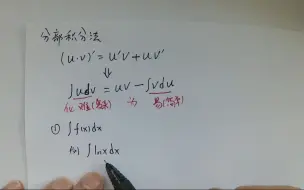 分部积分法
(u·v)' = u'v + uv'
⇓
∫udv = uv - ∫vdu
化 难(复杂) 为 易(简单)
① ∫f(x)dx
例 ∫lnxdx